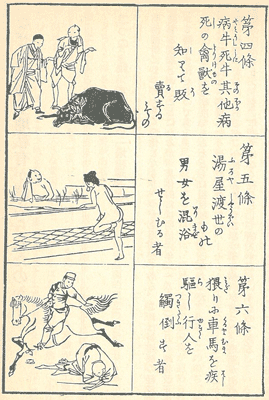 第四條
病牛死牛其他病
死の禽獣を
知りて販
賣する
もの
第五條
湯屋渡世の
もの
男女を混浴
せしむる者
第六條
猥りに車馬を疾
驅し行人を
觸倒す者